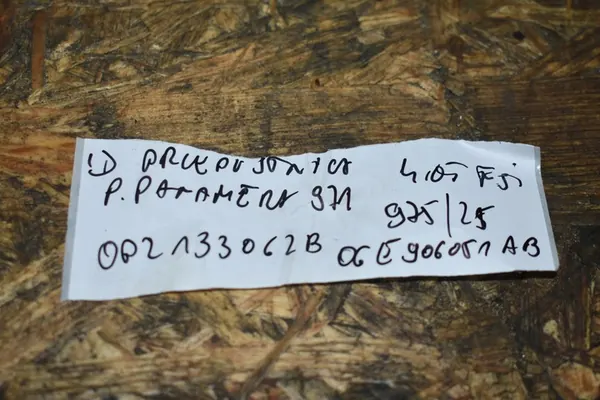 1) PRZEPUSTNICA 4.0T FSi
P. PANAMERA 971 975/25
0P2133062B 06E906051AB